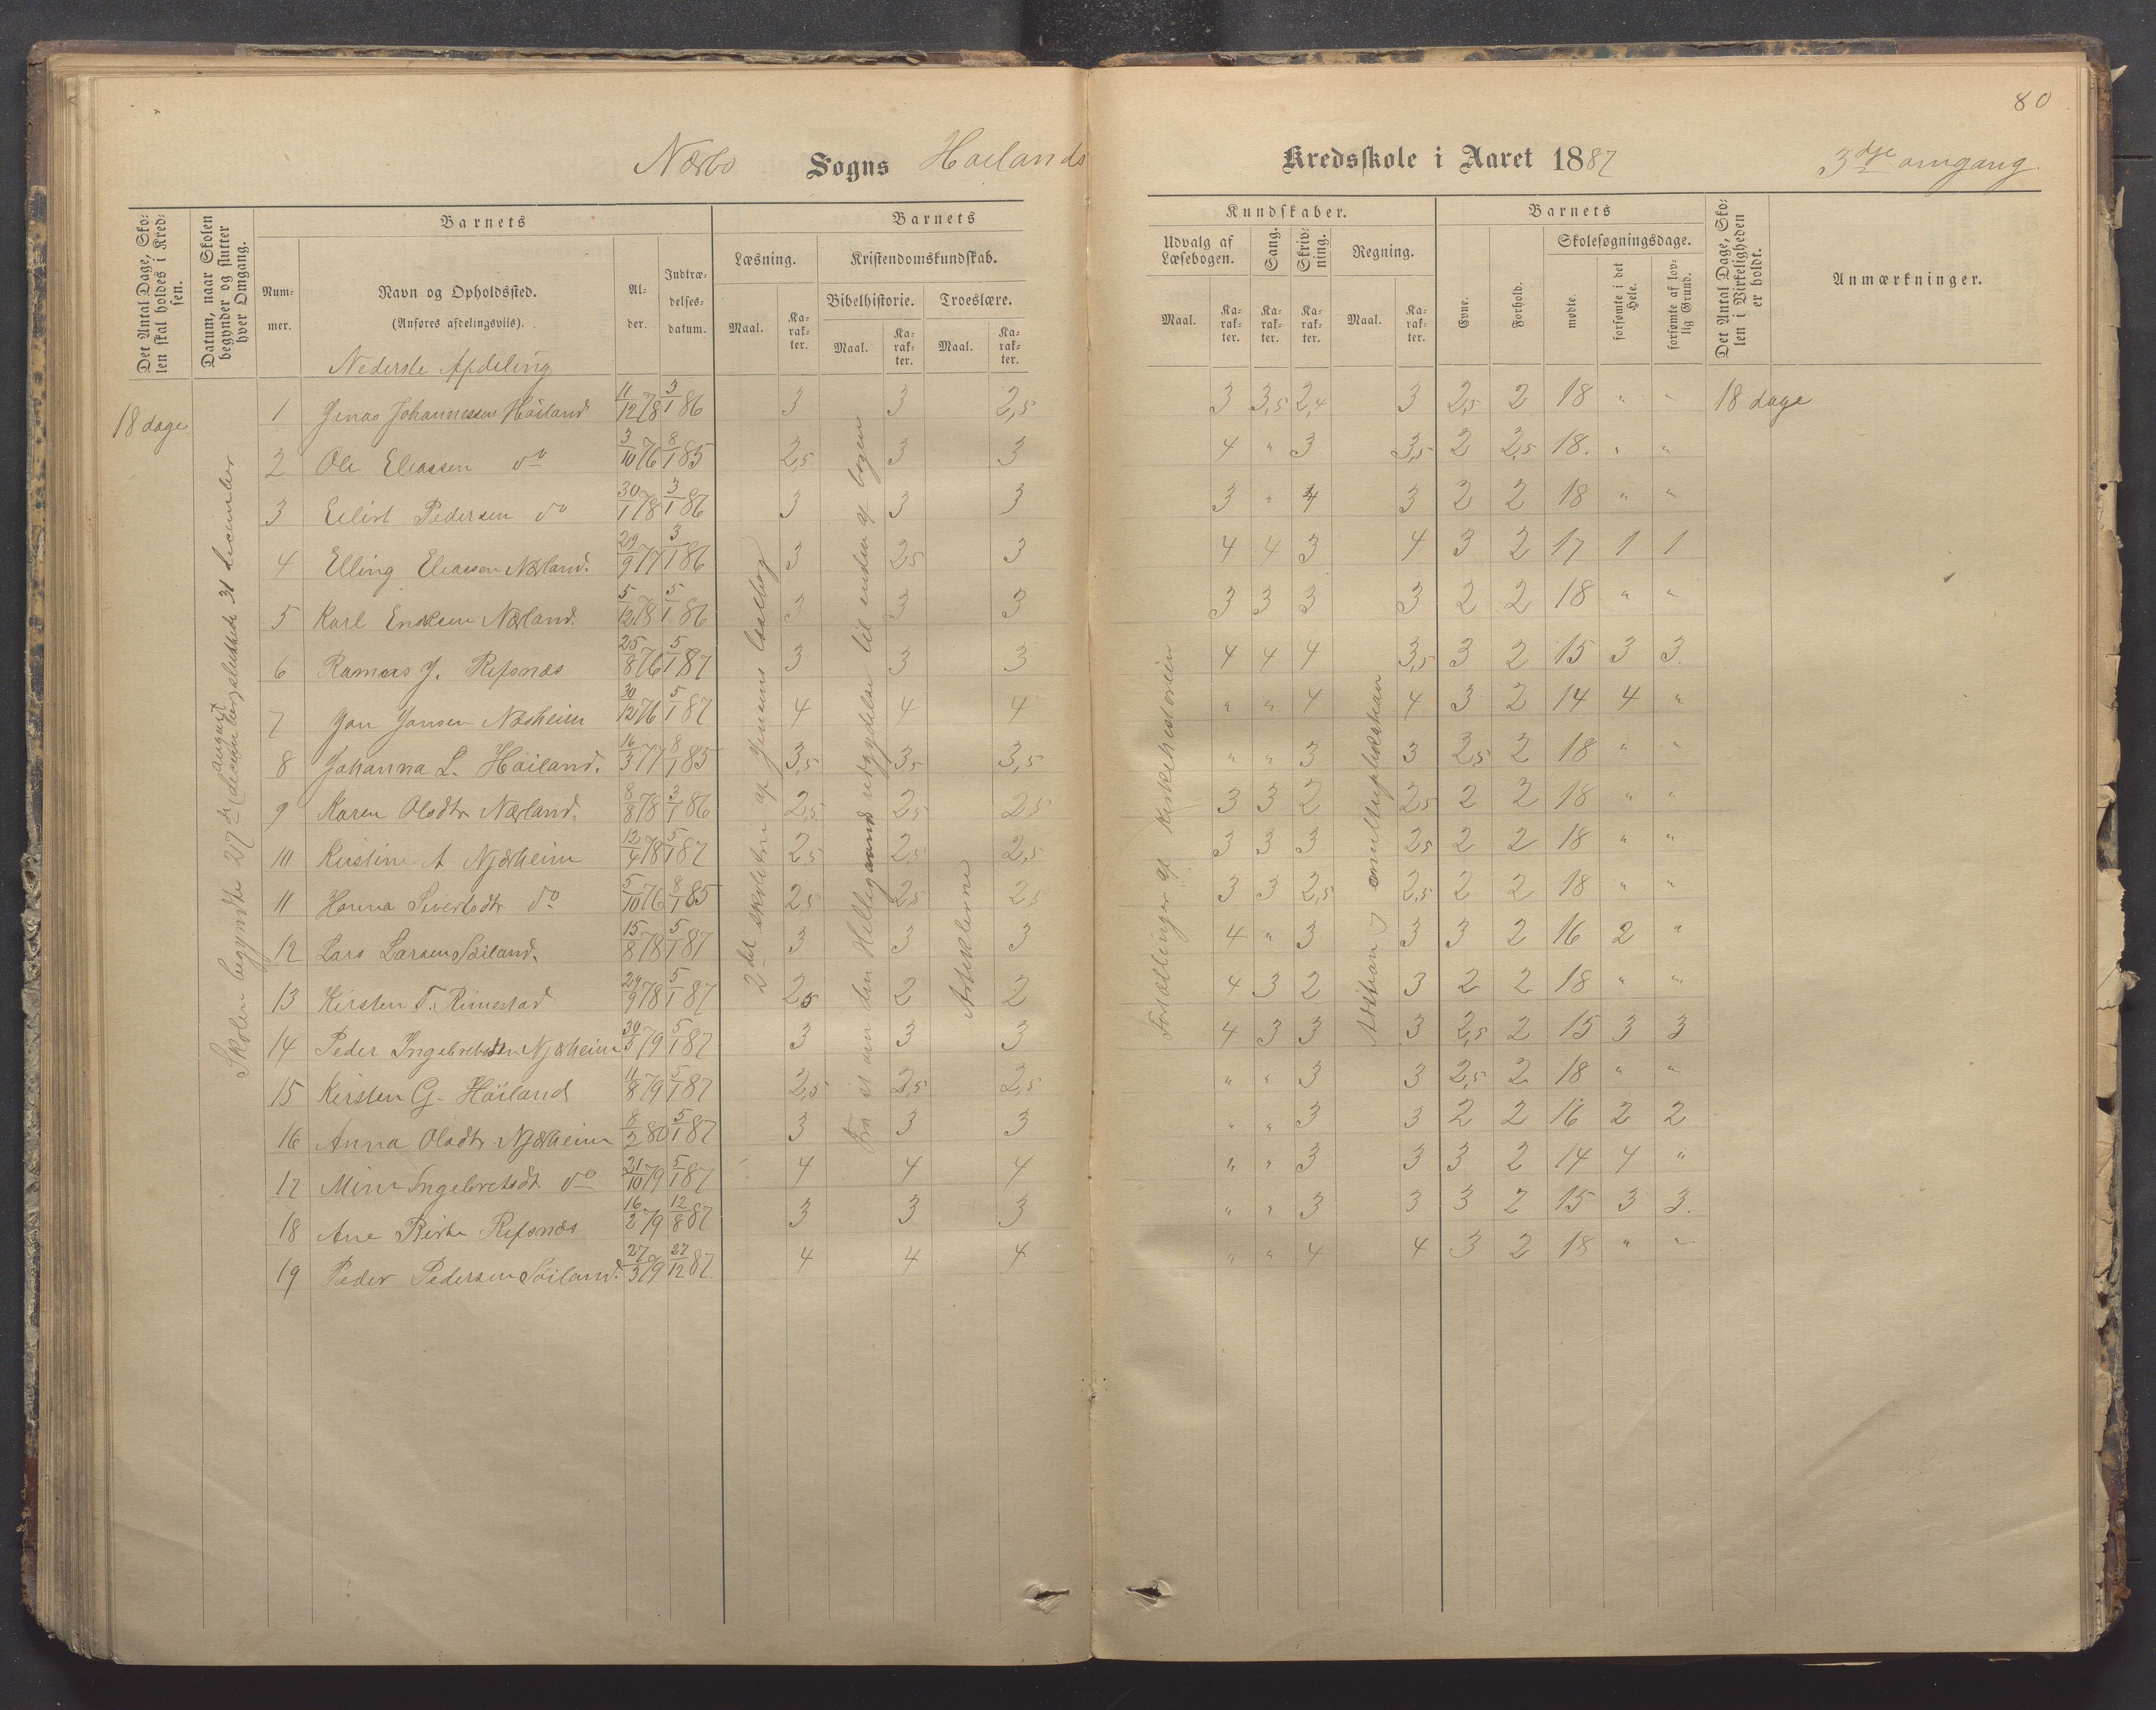 80
Nærbø Sogns Høilands Kredsskole i Aaret 1887 3die omgang.
Det Antal Dage, Skolen skal holdes i Kredsen.
Datum, naar Skolen begynder og slutter hver Omgang.
Barnets
Nummer.
Navn og Opholdssted.
(Anføres afdelingsviis).
Alder.
Indtrædelsesdatum.
Barnets
Læsning.
Maal.
Karakter.
Kristendomskundskab.
Bibelhistorie.
Maal.
Karakter.
Troeslære.
Maal.
Karakter.
Kundskaber.
Udvalg af Læsebogen.
Maal.
Karakter.
Sang.
Karakter.
Skrivning.
Karakter.
Regning.
Maal.
Karakter.
Barnets
Evne.
Forhold.
Skolesøgningsdage.
mødte.
forsømte i det Hele.
forsømte af lovlig Grund.
Det Antal Dage, Skolen i Virkeligheden er holdt.
Anmærkninger.
Nederste Afdeling
18 dage
Skolen begyndte 27de (december) sluttede 31 december
august
2det skoletrin af Jensens læsebog
Fra et den Helligaands udgydelse til enden af bogen
Artiklerne
Fortællinger af Kirkehistorien
Addition multiplikation
1 Jonas Johannessen Höiland 11/12 78 3/1 86 3 3 2,5 3 3,5 2,4 3 2,5 2 18 " " 18 dage
2 Ole Eliassen do 3/10 76 8/1 85 2,5 3 3 4 " 3 3,5 2 2,5 18. " "
3 Eilert Pedersen do 30/1 78 3/1 86 3 3 3 3 " 4 3 2 2 18 " "
4 Elling Eliassen Nærland. 29/9 77 3/1 86 3 2,5 3 4 4 3 4 3 2 17 1 1
5 Karl Enoksen Nærland. 5/12 78 5/1 86 3 3 3 3 3 3 3 2 2 18 " "
6 Rasmus J. Refsnæs 25/8 76 5/1 87 3 3 3 4 4 4 3,5 3 2 15 3 3.
7 Jan Jansen Næsheim 30/12 76 5/1 87 4 4 4 " " 4 4 3 2 14 4 "
8 Johanna L. Höiland. 16/3 77 8/1 85 3,5 3,5 3,5 " " 3 3 2,5 2 18 " "
9 Karen Olsdtr Nærland. 8/8 78 3/1 86 2,5 2,5 2,5 3 3 2 2,5 2 2 18 " "
10 Kirstine A Njærheim 12/4 78 5/1 87 2,5 2,5 2,5 3 3 3 2,5 2 2 18 " "
11 Hanna Sivertsdtr do 5/10 76 8/1 85 2,5 2,5 2,5 3 3 2,5 2,5 2 2 18 " "
12 Lars Larsen Söiland. 15/8 78 5/1 87 3 3 3 4 " 3 3 3 2 16 2 "
13 Kirsten T. Rimestad 29/9 78 5/1 87 2,5 2 2 4 3 2 3 2 2 18 " "
14 Peder Ingebretsen Njærheim 30/5 79 5/1 87 3 3 3 4 3 3 3 2,5 2 15 3 3
15 Kirsten G. Höiland 11/8 79 5/1 87 2,5 2,5 2,5 " " 3 3 2,5 2 18 " "
16 Anna Olsdtr Njærheim 8/2 80 5/1 87 3 3 3 " " 3 3 2 2 16 2 2
17 Mine Ingebretsdt. do 21/10 79 5/1 87 4 4 4 " " 3 3 3 2 14 4 "
18 Ane Birte Refsnæs 16/2 79 12/8 87 3 3 3 " " 3 3 3 2 15 3 3.
19 Peder Pedersen Söiland. 27/3 79 27/12 87 4 4 4 " " 4 4 3 2 18 " "